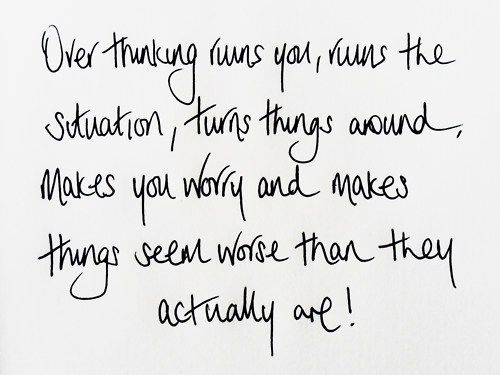 Over thinking ruins you, ruins the
situation, turns things around,
makes you worry and makes
things seem worse than they
actually are!